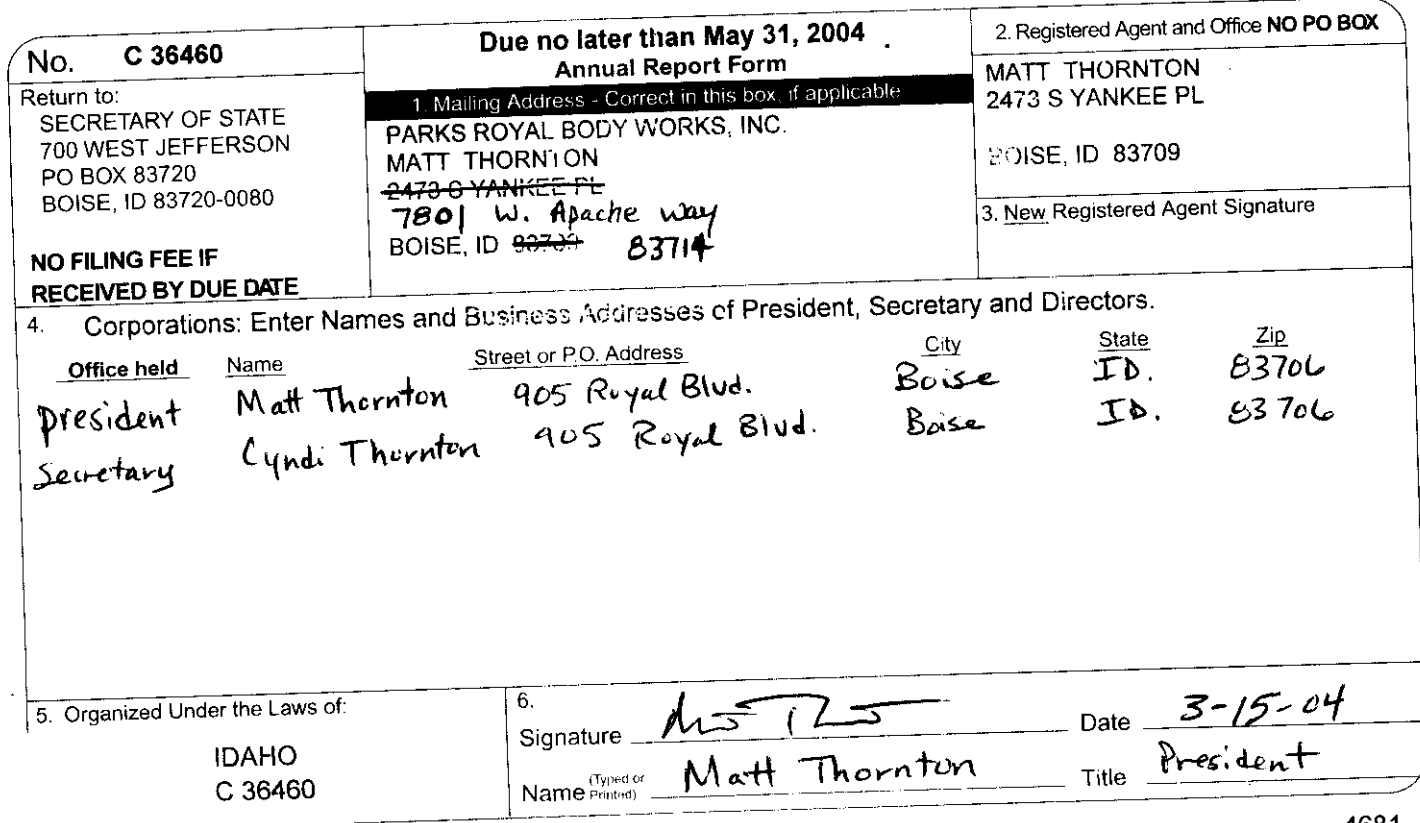 No. C 36460
Return to:
SECRETARY OF STATE
700 WEST JEFFERSON
PO BOX 83720
BOISE, ID 83720-0080
NO FILING FEE IF
RECEIVED BY DUE DATE
Due no later than May 31, 2004
Annual Report Form
1. Mailing Address - Correct in this box, if applicable
PARKS ROYAL BODY WORKS, INC.
MATT THORNTON
2473 S YANKEE PL
7801 W. Apache Way
BOISE, ID 83709 83714
2. Registered Agent and Office NO PO BOX
MATT THORNTON
2473 S YANKEE PL
BOISE, ID 83709
3. New Registered Agent Signature
4. Corporations: Enter Names and Business Addresses of President, Secretary and Directors.
Office held Name Street or P.O. Address City State Zip
President Matt Thornton 905 Royal Blvd. Boise ID. 83706
Secretary Cyndi Thornton 905 Royal Blvd. Boise ID. 83706
5. Organized Under the Laws of:
IDAHO
C 36460
6.
Signature Date 3-15-04
Name (Typed or Printed) Matt Thornton Title President